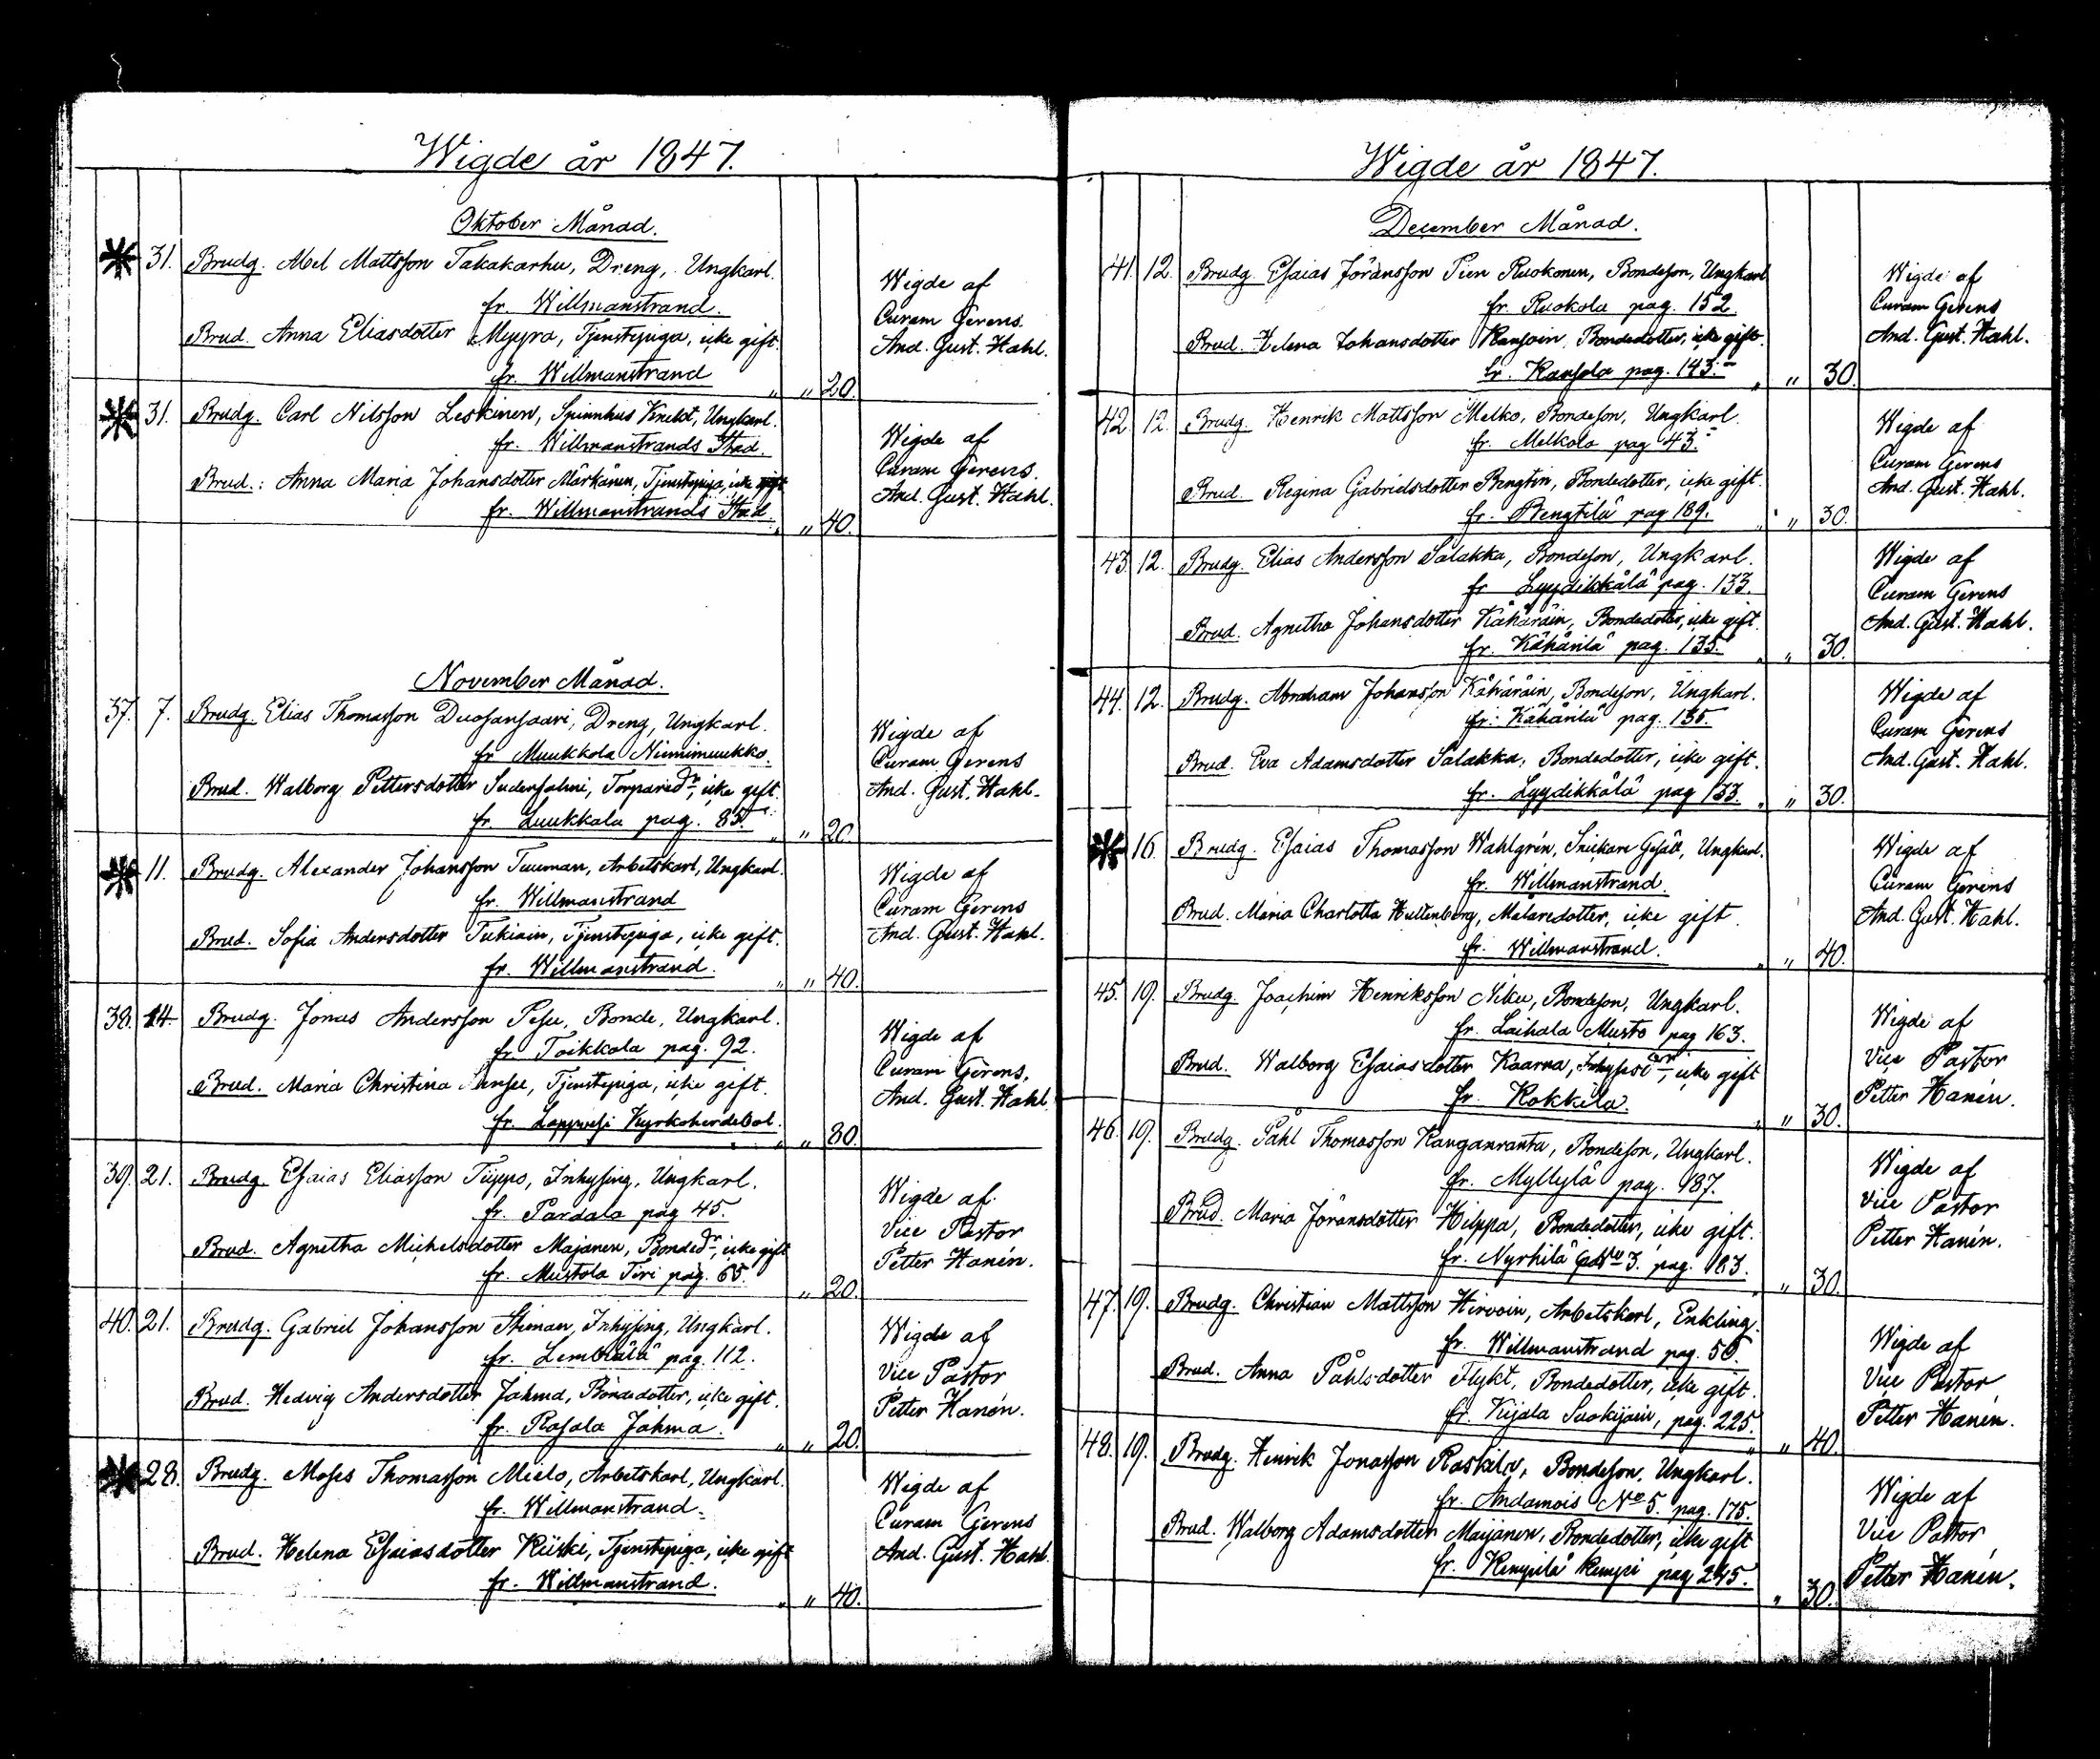 Wigde år 1847.
Oktober Månad.
31. Brudg. Abel Mattsson Takakarhu, Dreng, Ungkarl.
fr. Willmanstrand.
Brud. Anna Eliasdotter Myyra, Tjenstepiga, icke gift.
fr. Willmanstrand
" " 20.
Wigde af
Curam Gerens.
And. Gust. Hahl.
31. Brudg. Carl Nilsson Leskinen, Spinnhus Knekt, Ungkarl.
fr. Willmanstrands Stad.
Brud.: Anna Maria Johansdotter Märkänen, Tjenstepiga, icke gift
fr. Willmanstrands Stad.
" " 40.
Wigde af
Curam Gerens.
And. Gust. Hahl.
November Månad.
37. 7. Brudg. Elias Thomasson Duosansaari, Dreng, Ungkarl.
fr Muukkola Niimimuukko.
Brud. Walborg Pettersdotter Sudensalmi, Torparedr, icke gift
fr. Luukkala pag. 85.
" " 20.
Wigde af
Curam Gerens
And. Gust. Hahl.
11. Brudg. Alexander Johansson Tuuman, Arbetskarl, Ungkarl.
fr. Willmanstrand
Brud. Sofia Andersdotter Tukiain, Tjenstepiga, icke gift.
fr. Willmanstrand.
" " 40.
Wigde af
Curam Gerens
And. Gust. Hahl.
38. 14. Brudg. Jonas Andersson Pesu, Bonde, Ungkarl.
fr Toikkala pag. 92.
Brud. Maria Christina Tjenstepiga, icke gift.
fr. Lappvesi Kyrkoherdebol.
" " 30.
Wigde af
Curam Gerens.
And. Gust. Hahl.
39. 21. Brudg. Esaias Eliasson Tiippo, Inhysing, Ungkarl.
fr. Pardala pag 45.
Brud. Agnetha Michelsdotter Majanen, Bondedr, icke gift
fr. Mustola Tiri pag. 65.
" 20.
Wigde af
Vice Pastor
Petter Hanén.
40. 21. Brudg. Gabriel Johansson Stiman, Inhysing, Ungkarl.
fr. Lembälä pag. 112.
Brud. Hedvig Andersdotter Jahma, Bondedotter, icke gift.
fr. Rasala Jahma.
" " 20.
Wigde af
Vice Pastor
Petter Hanén.
28. Brudg. Moses Thomasson Mielo, Arbetskarl, Ungkarl.
fr. Willmanstrand.
Brud. Helena Esaiasdotter Kiiski, Tjenstepiga, icke gift
fr. Willmanstrand.
" " 40.
Wigde af
Curam Gerens
And. Gust. Hahl.
Wigde år 1847.
December Månad.
41. 12. Brudg. Esaias Jöransson Pien Ruokonen, Bondeson, Ungkarl
fr. Ruokola pag. 152.
Brud. Helena Johansdotter Kansoin, Bondedotter, icke gift.
fr. Kansola pag. 143.
" " 30.
Wigde af
Curam Gerens
And. Gust. Hahl.
42. 12. Brudg. Henrik Mattsson Melko, Bondeson, Ungkarl.
fr. Melkola pag 43.
Brud. Regina Gabrielsdotter Bengtin, Bondedotter, icke gift.
fr. Bengtilä pag 189.
" " 30.
Wigde af
Curam Gerens
And. Gust. Hahl.
43. 12. Brudg. Elias Andersson Salakka, Bondeson, Ungkarl.
fr Lyydikkälä pag. 133.
Brud. Agnetha Johansdotter Kähäräin, Bondedotter, icke gift.
fr. Kähärilä pag. 135.
" " 30.
Wigde af
Curam Gerens
And. Gust. Hahl.
44. 12. Brudg. Abraham Johansson Kähäräin, Bondeson, Ungkarl.
fr. Kähärilä pag. 135.
Brud. Eva Adamsdotter Salakka, Bondedotter, icke gift.
fr. Lyydikkälä pag 133.
" " 30.
Wigde af
Curam Gerens
And. Gust. Hahl.
16. Brudg. Esaias Thomasson Wahlgrén, Snickare Gesäll, Ungkarl.
fr. Willmanstrand.
Brud. Maria Charlotta Hultenberg, Målaredotter, icke gift.
fr. Willmanstrand.
" " 40.
Wigde af
Curam Gerens
And. Gust. Hahl.
45. 19. Brudg. Joachim Henriksson Niku, Bondeson, Ungkarl.
fr. Laihala Musto pag 163.
Brud. Walborg Esaiasdotter Kaarna, icke gift
fr. Kokkila.
" 30.
Wigde af
Vice Pastor
Petter Hanén.
46. 19. Brudg. Påhl Thomasson Kanganranta, Bondeson, Ungkarl.
fr. Myllylä pag. 187.
Brud. Maria Jöransdotter Hilppa, Bondedotter, icke gift.
fr. Nyrhilä No 3. pag. 183.
" 30.
Wigde af
Vice Pastor
Petter Hanén.
47. 19. Brudg. Christian Mattsson Hirvoin, Arbetskarl, Enkling.
fr. Willmanstrand pag. 50.
Brud. Anna Påhlsdotter Flykt, Bondedotter, icke gift.
fr. Kijala Suokijain, pag. 225.
" " 40.
Wigde af
Vice Pastor
Petter Hanén.
48. 19. Brudg. Henrik Jonasson Raskilv, Bondeson, Ungkarl.
fr. Andamois No 5. pag. 175.
Brud. Walborg Adamsdotter Maijanen, Bondedotter, icke gift
fr. Kempilä Kemppi pag 245.
" 30.
Wigde af
Vice Pastor
Petter Hanén.